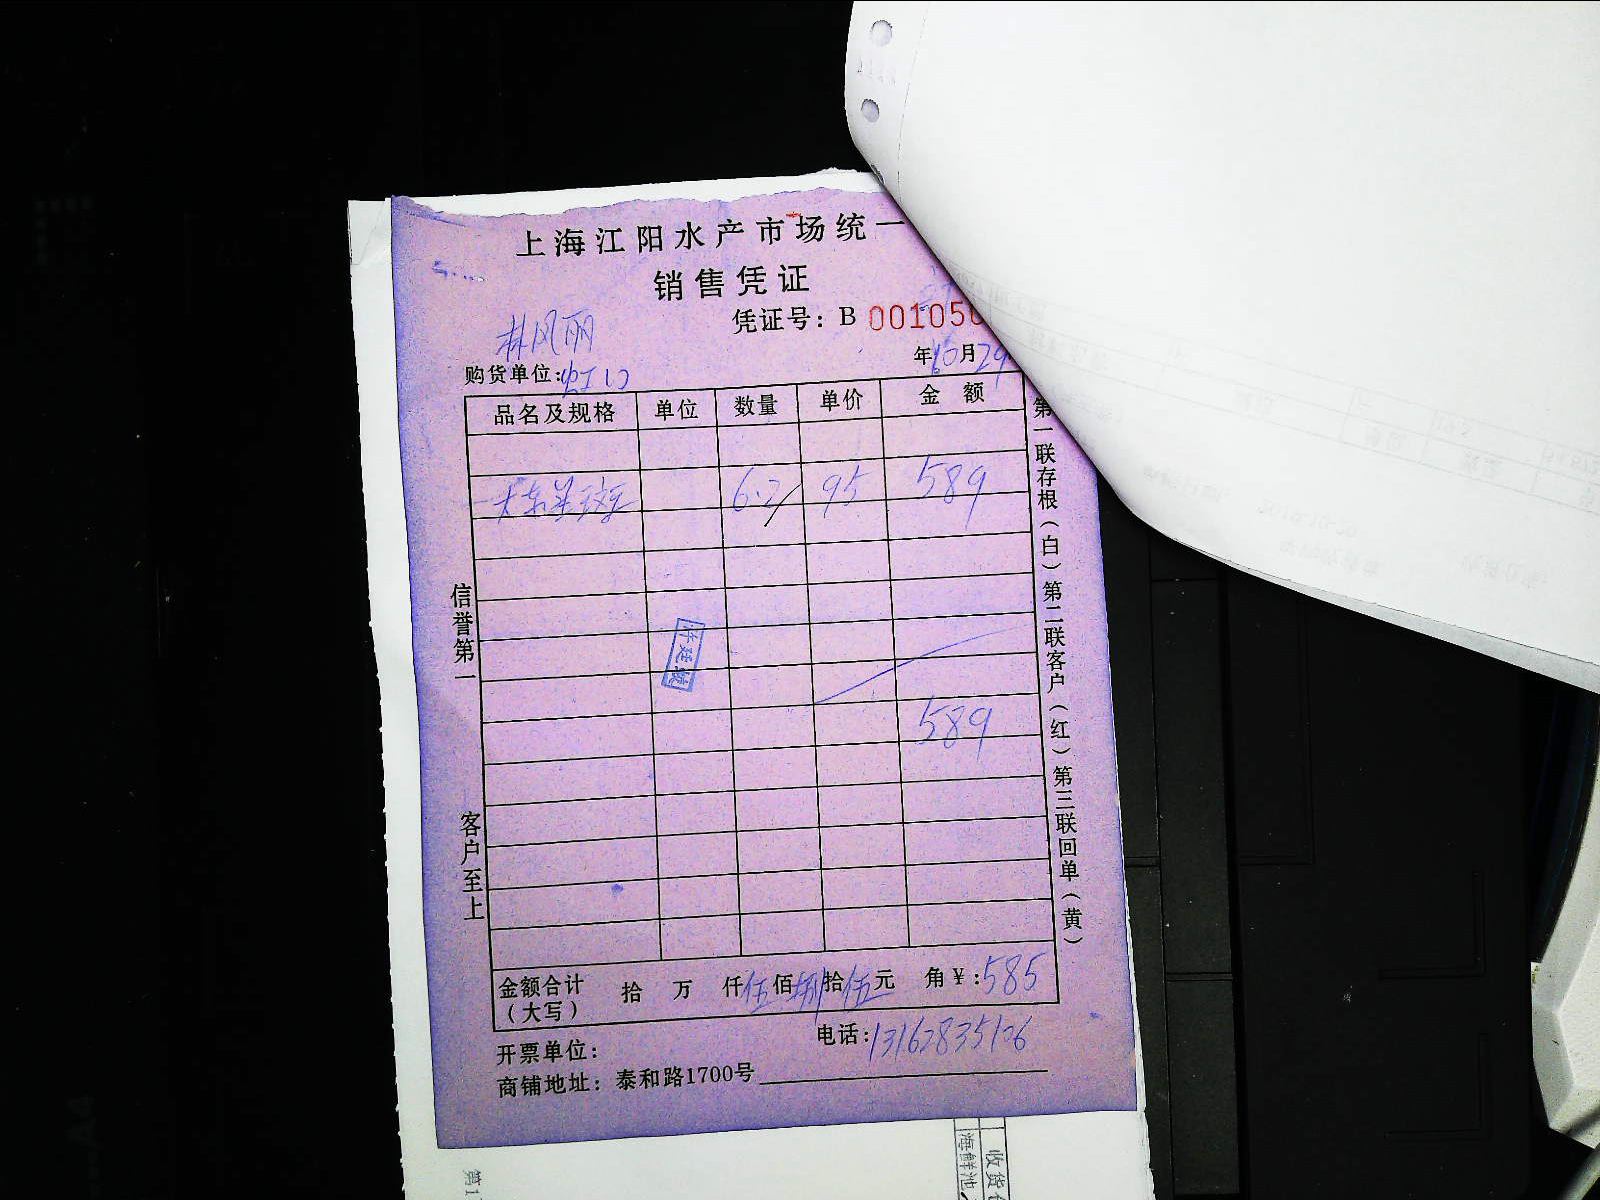 上海江阳水产市场统一
销售凭证
凭证号：B 001050
林风丽
年10月29
购货单位：虹口
品名及规格 单位 数量 单价 金额
6.2 95 589
589
信誉第一
客户至上
第一联存根（白）第二联客户（红）第三联回单（黄）
金额合计（大写） 拾 万 仟伍佰捌拾伍元 角¥：585
电话：13162835106
开票单位：
商铺地址：泰和路1700号
收货
海鲜池